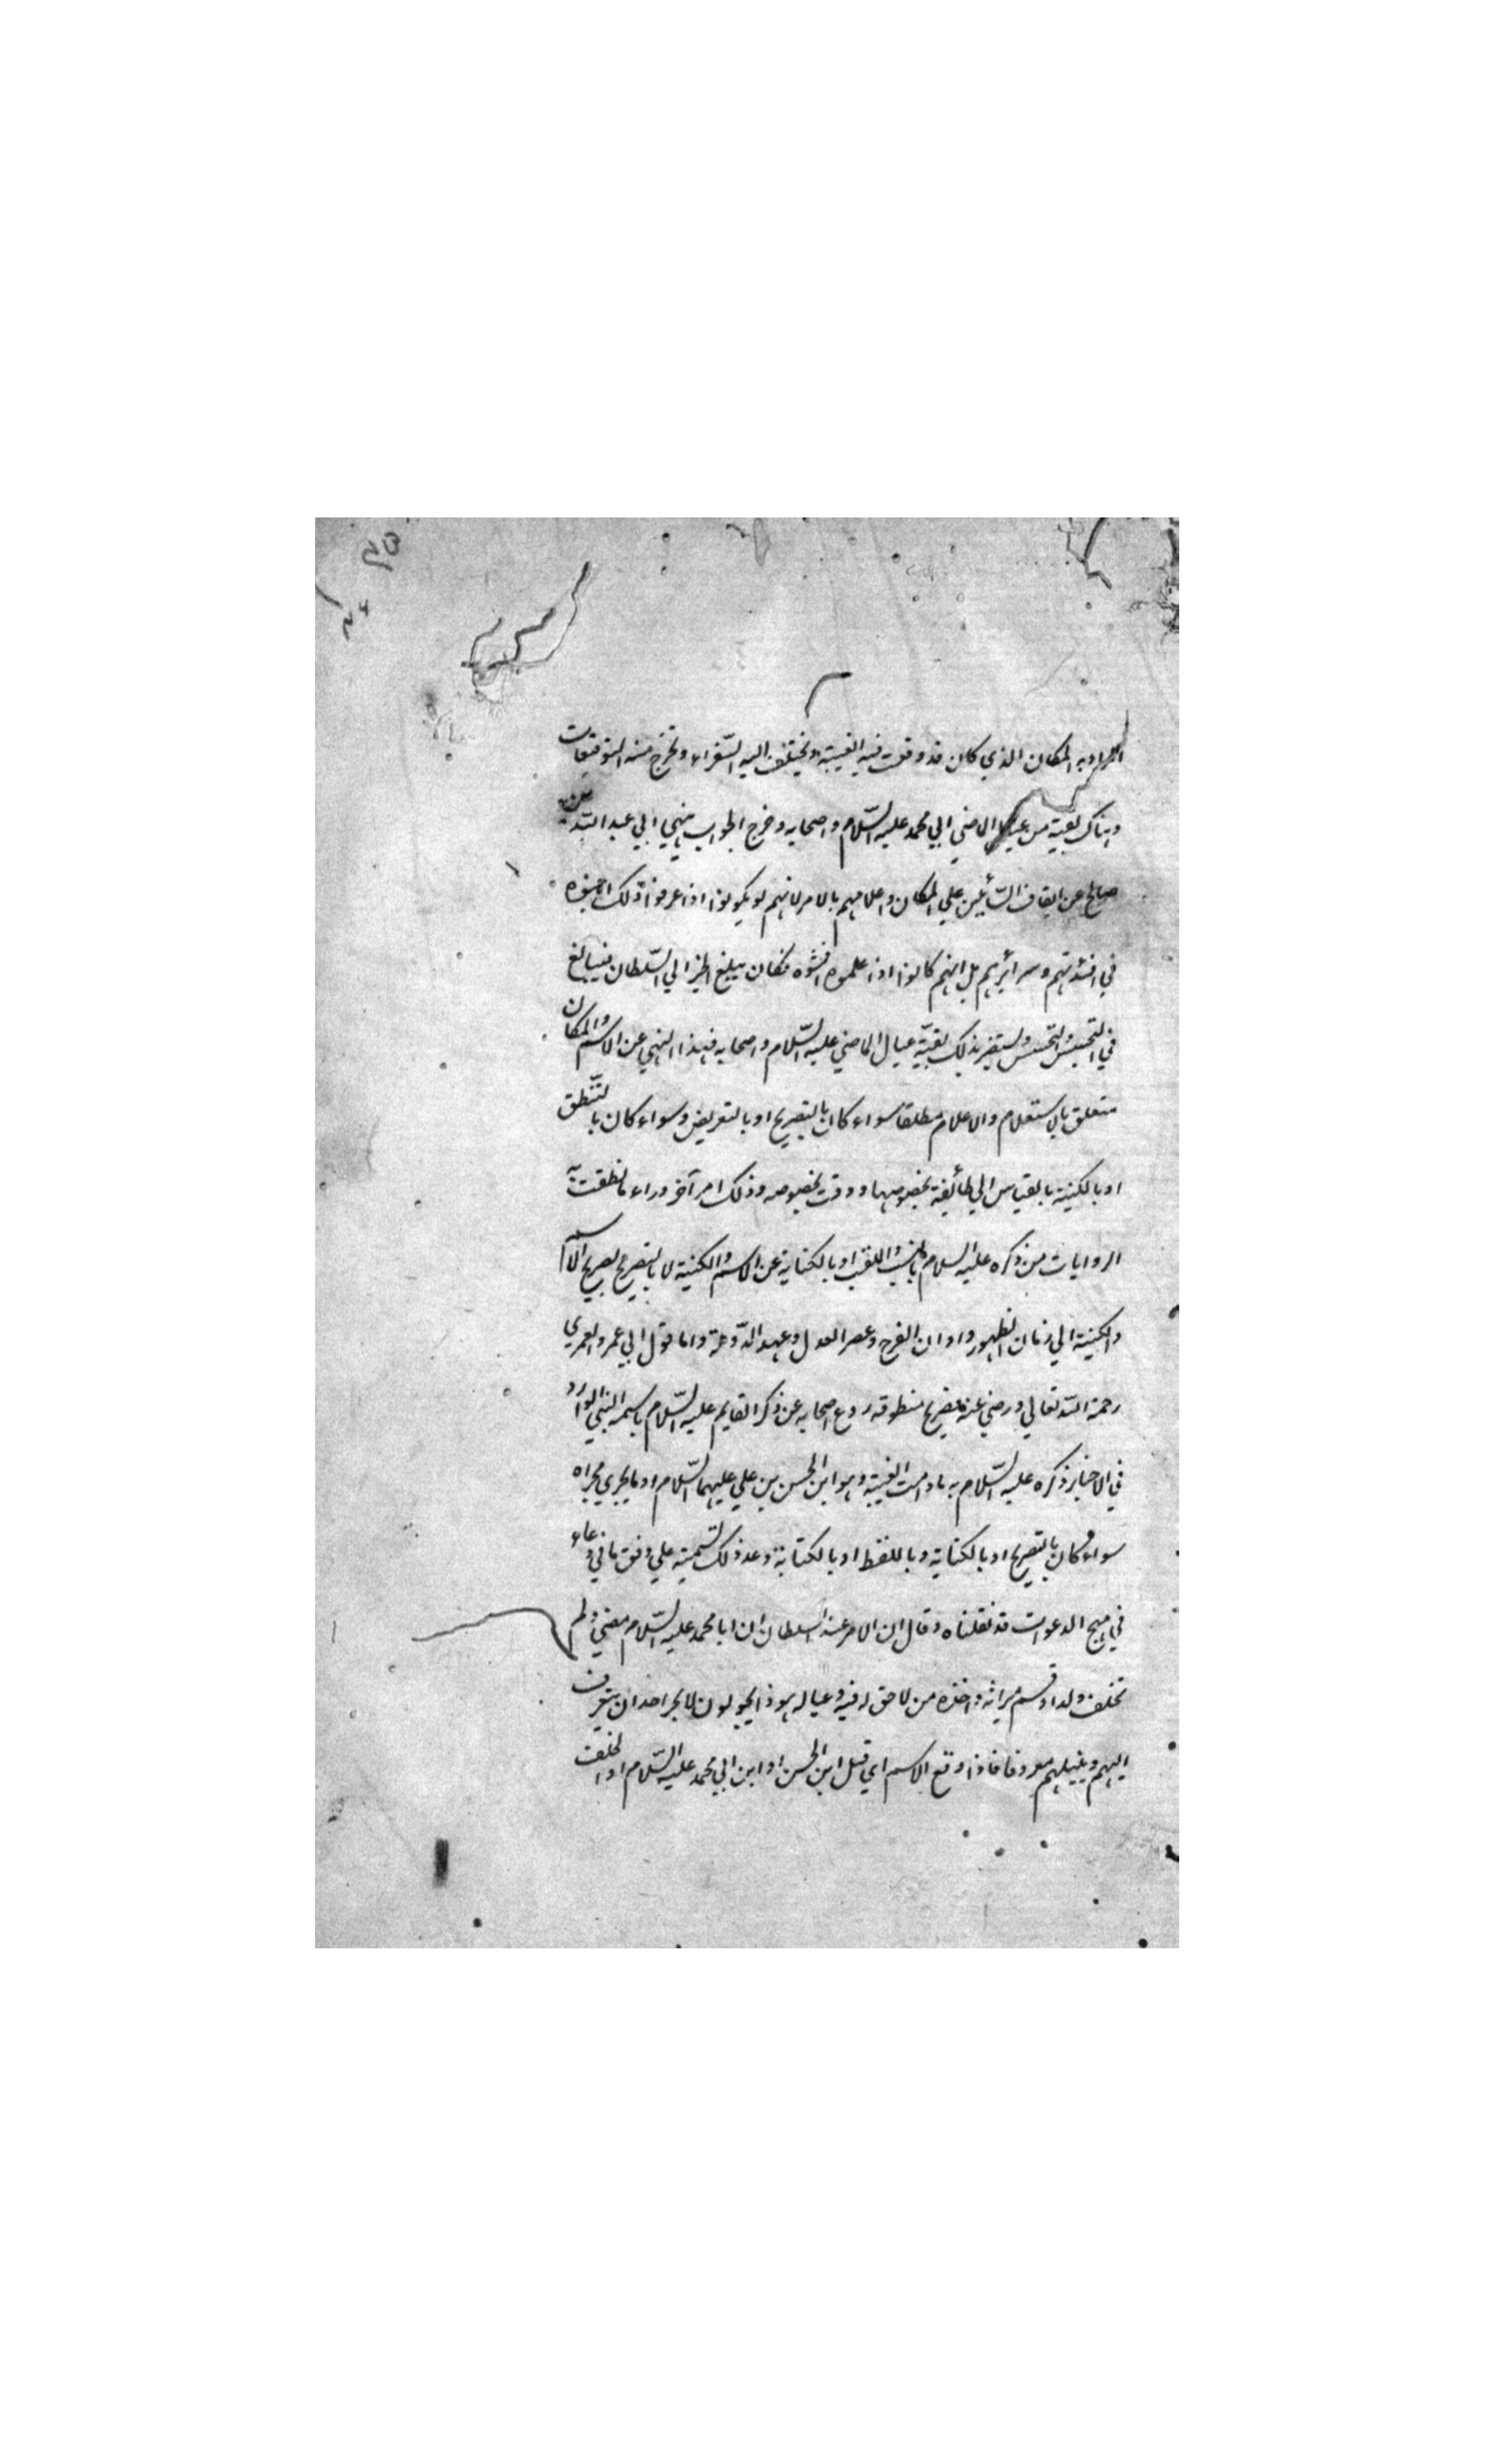 المراد به المكان الذي كان قد وقعت فيه الغيبة ويختلف اليه السّفراء وتخرج منه التوقيعات
وهناك بقيّة من عيال الماضي ابي محمد عليه السّلام واصحابه وخرج الجواب بنهي ابي عبد الله بن
صالح عن ايقاف السّائلين علي المكان واعلامهم بالامر لانهم لو يكونوا اذا عرفوا ذلك
في افئدتهم وسرائرهم بل انهم كانوا اذا علموه افشوه فكان يبلغ الخبر الي السّلطان فيبالغ
في التجسّس والتحسّس ويستضر بذلك بقيّة عيال الماضي عليه السّلام واصحابه فهذا النهي عن الاسم والمكان
متعلق بالاستعلام والاعلام مطلقا سواء كان بالتصريح او بالتعريض وسواء كان بالتّنطق
او بالكنية بالقياس الي طائفة بخصوصها ووقت بخصوصه وذلك امر آخر وراء ما نطقت به
الروايات من ذكره عليه السلام باللقب او بالكناية عن الاسم والكنية لا بالتصريح بصريح الاسم
والكنية الي زمان الظهور واوان الفرج وعصر العدل وعهد الدّوحة واما قول ابي عمرو العمري
رحمة الله تعالي ورضي عنه فصريح منطوقه ردع اصحابه عن ذكر القايم عليه السّلام باسمه النبي الوارد
في الاخبار ذكره عليه السّلام به مادامت الغيبة وهو ابن الحسن بن علي عليهما السّلام او ما يجري مجراه
سواء كان بالتصريح او بالكناية وباللفظ او بالكتابة وعد ذلك تسمية علي وفق ما في دعاء
في مهج الدعوات قد نقلناه وقال ان الامر عند السلطان ان ابا محمد عليه السّلام مضي ولم
تخلف ولدا وقسم ميراثه واخذه من لا حق له فيه وعياله هوذا يجولون لا يجر احد ان يتعرف
اليهم وينيلهم معروفا فاذا وقع الاسم اي قيل ابن الحسن او ابن ابي محمد عليه السّلام او الخلف